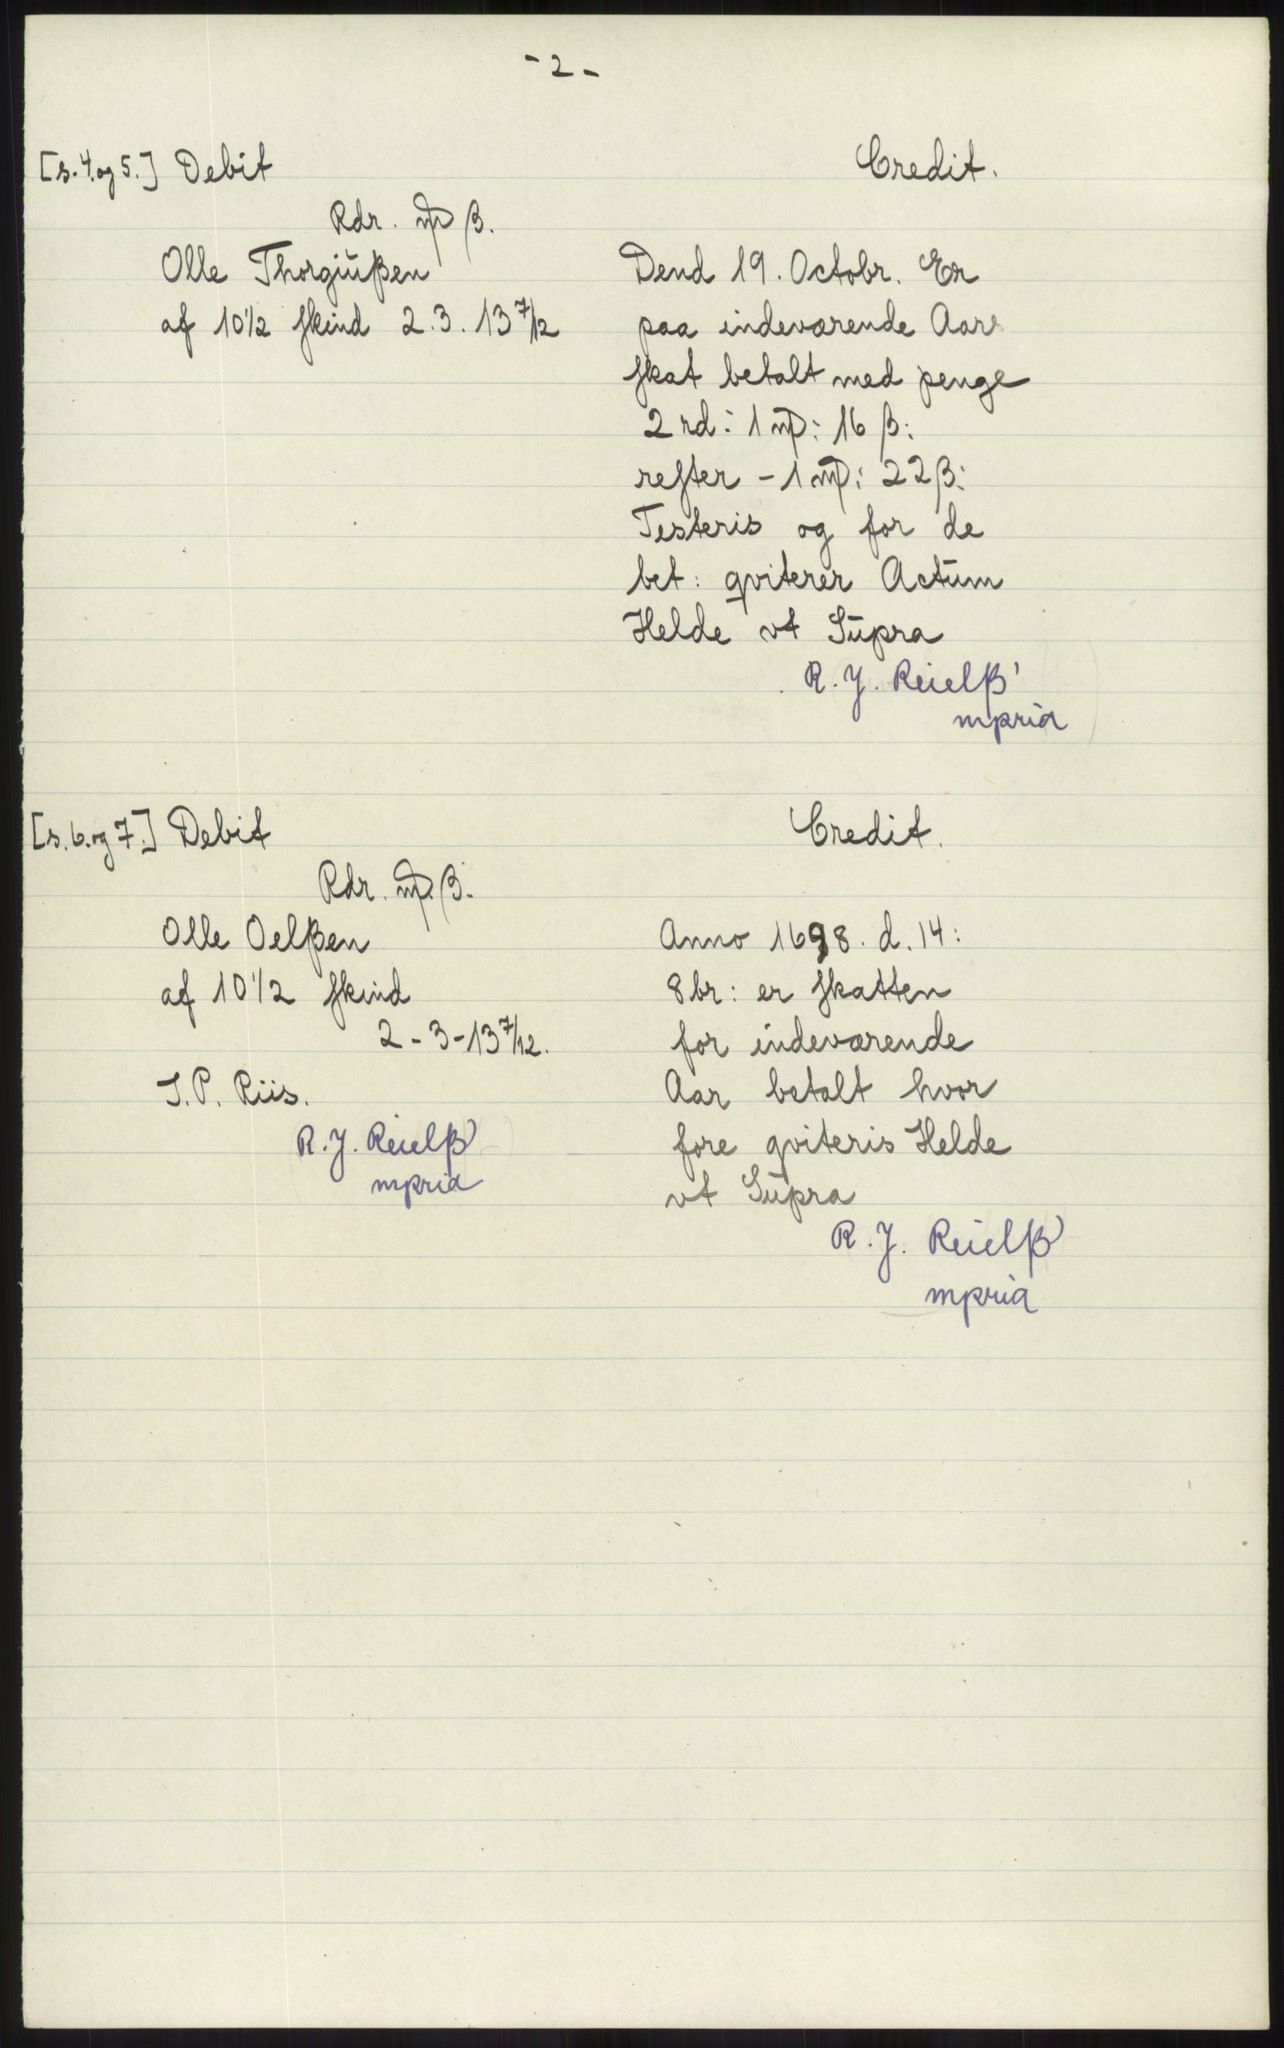 - 2 -
[s. 4. og 5.] Debit
Rdr. mþ β.
Olle Thorgiŭßen
af 10 1/2 skind 2. 3. 13 7/12
Credit.
Dend 19. Octobr. Er
paa indeværende Aars
skat betalt med penge
2 rd: 1 mþ: 16 β:
rester - 1 mþ: 22 β:
Testeris og for de
bet: qviterer Actŭm
Helde vt Sŭpra
R. J. Reielß
mpria
[s. 6. og 7.] Debit
Rdr. mþ. β.
Olle Oelßen
af 10 1/2 skind
2 - 3 - 13 7/12.
J. P. Riis.
R. J. Reielß
mpria
Credit.
Anno 1698. d. 14:
8br: er skatten
for indeværende
Aar betalt hvor
fore qviteris Helde
vt Sŭpra
R. J. Reielß
mpria